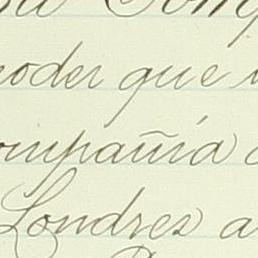 poder que
ompañía
Londres a